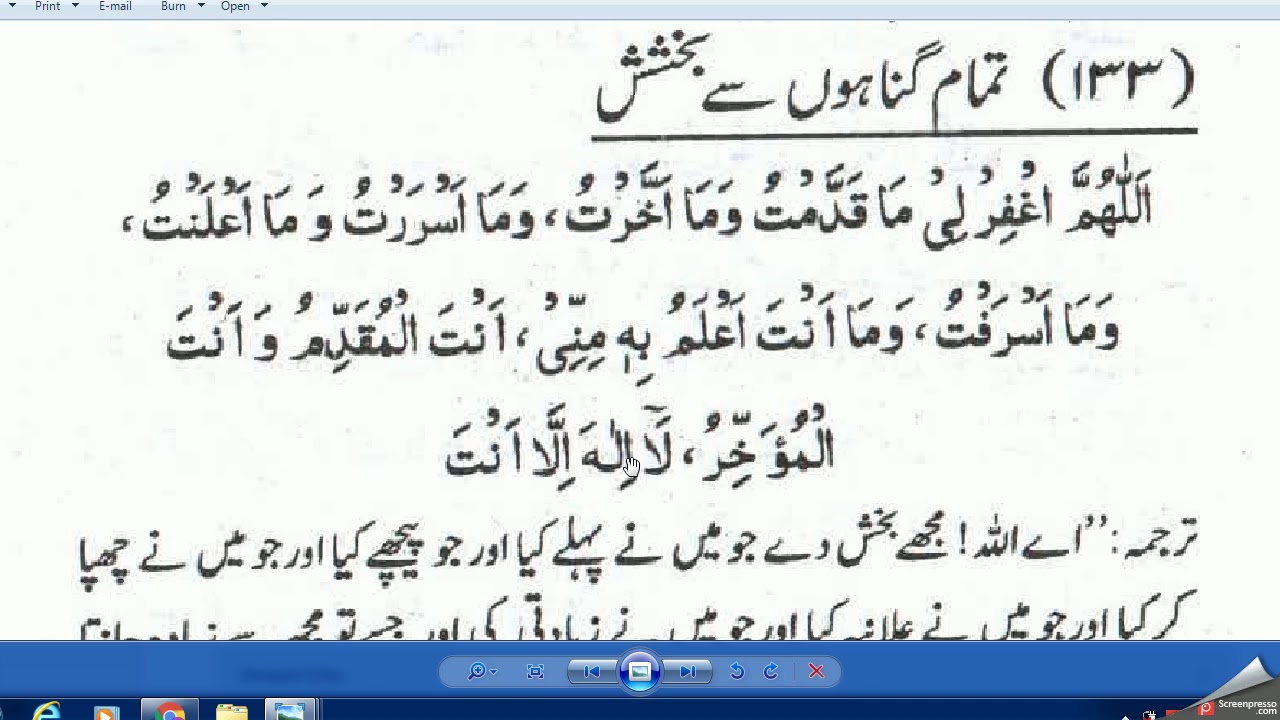 Print E-mail Burn Open
(١٣٣) تمام گناہوں سے بخشش
اَللّٰهُمَّ اغْفِرْ لِیْ مَا قَدَّمْتُ وَمَا اَخَّرْتُ، وَمَا اَسْرَرْتُ وَ مَا اَعْلَنْتُ،
وَمَا اَسْرَفْتُ، وَمَا اَنْتَ اَعْلَمُ بِهٖ مِنِّیْ، اَنْتَ الْمُقَدِّمُ وَ اَنْتَ
الْمُؤَخِّرُ، لَآ اِلٰهَ اِلَّا اَنْتَ
ترجمہ: ’’اے اللہ! مجھے بخش دے جو میں نے پہلے کیا اور جو پیچھے کیا اور جو میں نے چھپا
کر کیا اور جو میں نے علانیہ کیا اور جو میں نے زیادتی کی اور جسے تو مجھ سے زیادہ جانتا
Screenpresso
.com